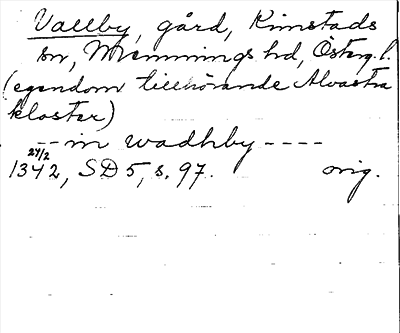 Vallby, gård, Kimstads
sn, Memmings hd, Österg. l.
(egendom tillhörande Alvastra
kloster)
-- in wadhby ----
27/2
1342, SD 5, s. 97. orig.